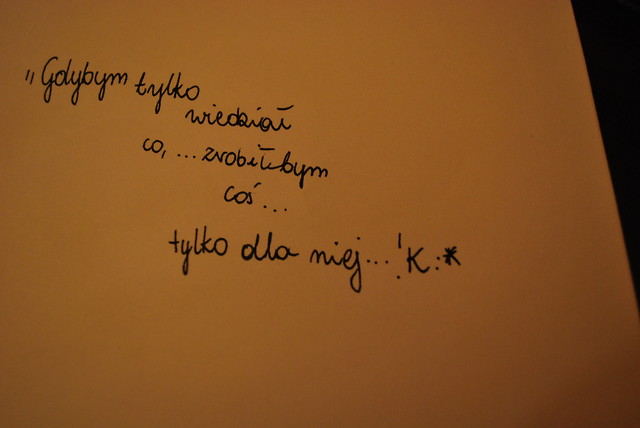 „Gdybym tylko
wiedział
co, ... zrobiłbym
coś ...
tylko dla niej... ! K :*